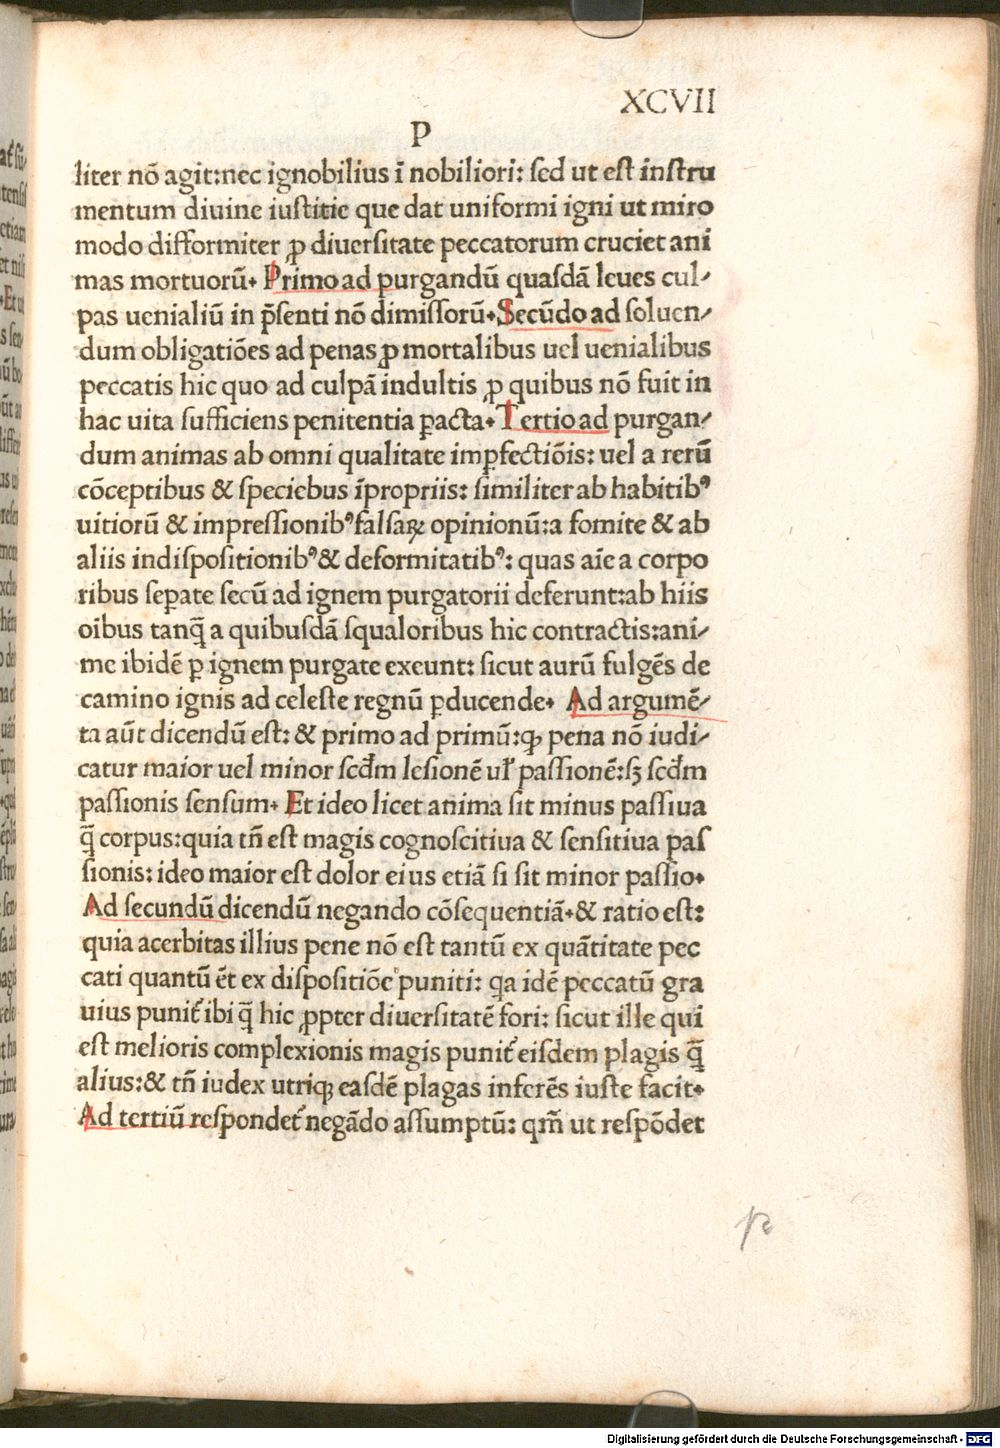 XCVII
P
liter nō agit:nec ignobilius ī nobiliori: ſed ut eſt inſtru
mentum diuine iuſtitie que dat uniformi igni ut miro
modo difformiter ꝓ diuerſitate peccatorum cruciet ani
mas mortuorū. Primo ad purgandū quaſdā leues cul⸗
pas uenialiū in p̄ſenti nō dimiſſorū. Secūdo ad ſoluen⸗
dum obligatiōes ad penas ꝓ mortalibus uel uenialibus
peccatis hic quo ad culpā indultis ꝓ quibus nō fuit in
hac uita ſufficiens penitentia ꝑacta. Tertio ad purgan⸗
dum animas ab omni qualitate imꝑfectiōis: uel a rerū
cōceptibus & ſpeciebus īpropriis: ſimiliter ab habitibꝰ
uitiorū & impreſſionibꝰ falſaꝝ opinionū:a fomite & ab
aliis indiſpoſitionibꝰ & deformitatibꝰ: quas aīe a corpo
ribus ſeꝑate ſecū ad ignem purgatorii deferunt:ab hiis
oībus tanq̄ a quibuſdā ſqualoribus hic contractis:ani⸗
me ibidē ꝑ ignem purgate exeunt: ſicut aurū fulgēs de
camino ignis ad celeſte regnū ꝑducende. Ad argumē⸗
ta aūt dicendū eſt: & primo ad primū:ꝙ pena nō iudi⸗
catur maior uel minor ſcd̄m leſionē ul̓ paſſionē:ſꝫ ſcd̄m
paſſionis ſenſum. Et ideo licet anima ſit minus paſſiua
q̄ corpus:quia tn̄ eſt magis cognoſcitiua & ſenſitiua paſ
ſionis: ideo maior eſt dolor eius etiā ſi ſit minor paſſio.
Ad ſecundū dicendū negando cōſequentiā.& ratio eſt:
quia acerbitas illius pene nō eſt tantū ex quātitate pec
cati quantū ēt ex diſpoſitiōe puniti: qa idē peccatū gra
uius punit̓ ibi q̄ hic ꝓpter diuerſitatē fori: ſicut ille qui
eſt melioris complexionis magis punit̓ eiſdem plagis q̄
alius:& tn̄ iudex utriqꝫ eaſdē plagas inferēs iuſte facit.
Ad tertiū reſpondet̓ negādo aſſumptū: qm̄ ut reſpōdet
Digitalisierung gefördert durch die Deutsche Forschungsgemeinschaft - DFG